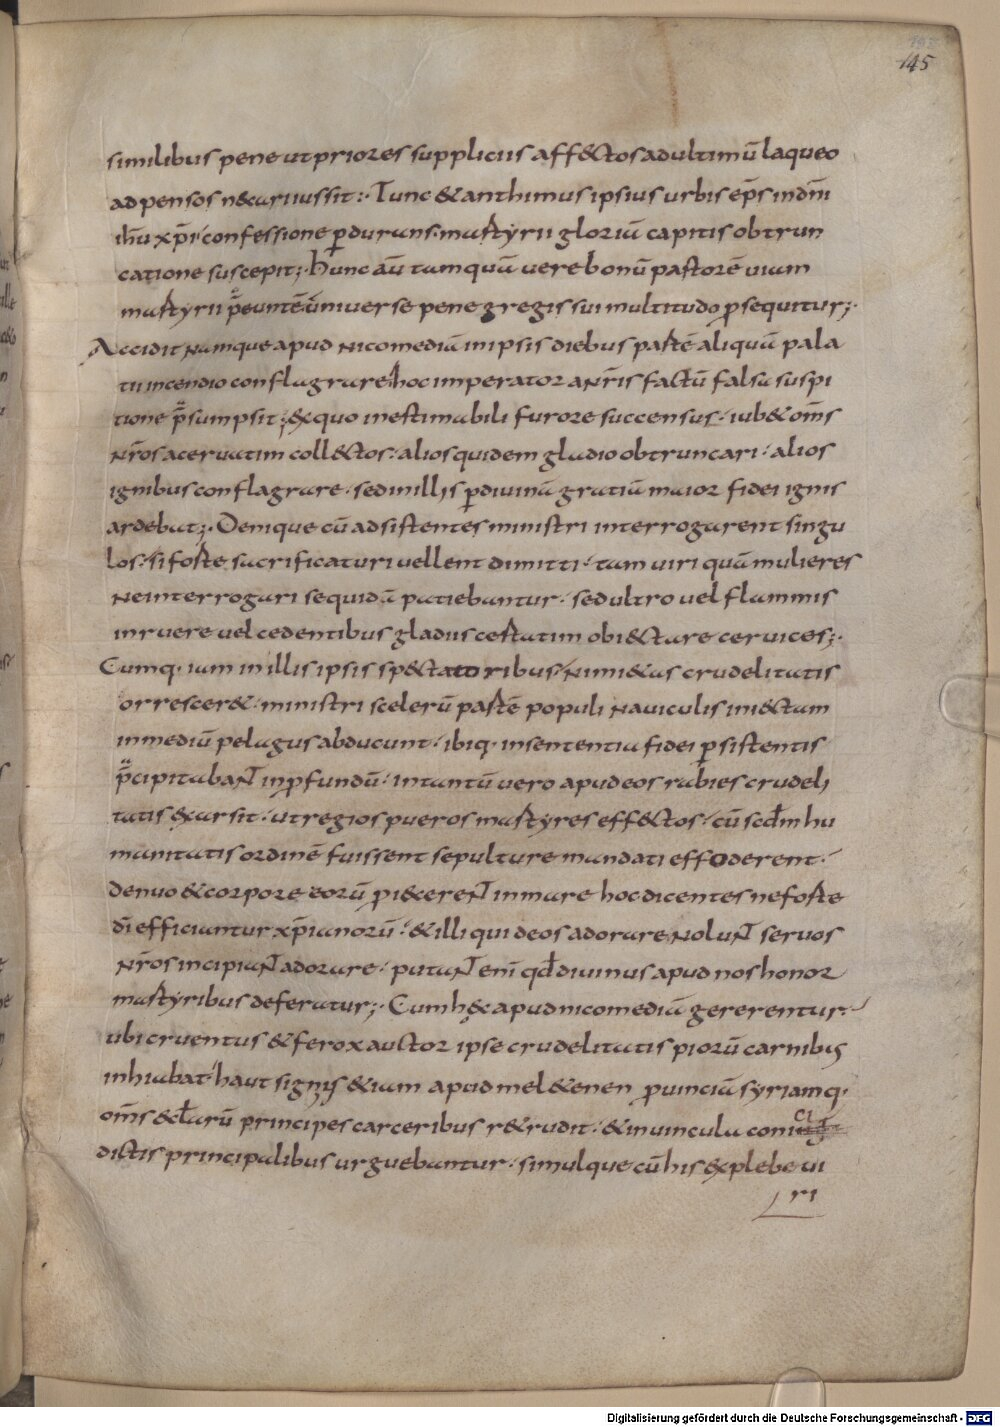 145
similibus pene ut priores suppliciis aff&ctos ad ultimū laqueo
adpensos n&cari iussit:· Tunc & anthimus ipsius urbis ep̄s indn̄i
ih̄u xp̄i confessione ꝑdurans· martyrii gloriā capitis obtrun
catione suscepit;· hunc aū tamquā vere bonū pastorē uiam
martyrii p̄euntē universe pene gregis sui multitudo ꝓsequitur;·
Accidit namque apud nicomediā in ipsis diebus partē aliquā pala
tii incendio conflagrare hoc imperator a nr̄is factū falsa suspi
tione p̄sumpsit; ex quo inestimabili furore succensus· iub& om̄s
nr̄os aceruatim coll&ctos· alios quidem gladio obtruncari· alios
ignibus conflagrare· sed in illis ꝑ divinā gratiā maior fidei ignis
ardebat;· Denique cū adsistentes ministri interrogarent singu
los· si forte sacrificaturi vellent dimitti· tam viri quā mulieres
ne interrogari se quidā patiebantur· sed ultro vel flammis
inruere vel cedentibus gladiis certatim obi&ctare cervices;·
Cumq· iam in illis ipsis sp&ctatoribus nimi&as crudelitatis
orrescer&· ministri scelerū partē populi naviculis ini&ctam
in medium pelagus abducunt· ibiq· in sententia fidei ꝑsistentis
p̄cipitabant in ꝓfundū· in tantū vero apud eos rabies crudeli
tatis exarsit· ut regios pueros martyres eff&ctos· cū scdm hu
manitatis ordinē fuissent sepulture mandati effoderent·
denuo & corpore eorū ꝓi&cerent in mare hoc dicentes ne forte
dī efficiantur xp̄ianorū· & illi qui deos adorare nolunt servos
nr̄os incipiant adorare· putant enī qđ divinus apud nos honor
martyribus deferatur;· Cum hęc apud nicomediā gererentur·
ubi cruentus & ferox auctor ipse crudelitatis piorū carnibus
inhiabat· haut signis &iam apud mel&enen ꝓuinciā syriamq·
om̄s eccl̄arū principes carceribus r&rudit· & in uincula coni
dictis principalibus urguebantur· simulque cū his ex plebe ui
ri
Digitalisierung gefördert durch die Deutsche Forschungsgemeinschaft - DFG